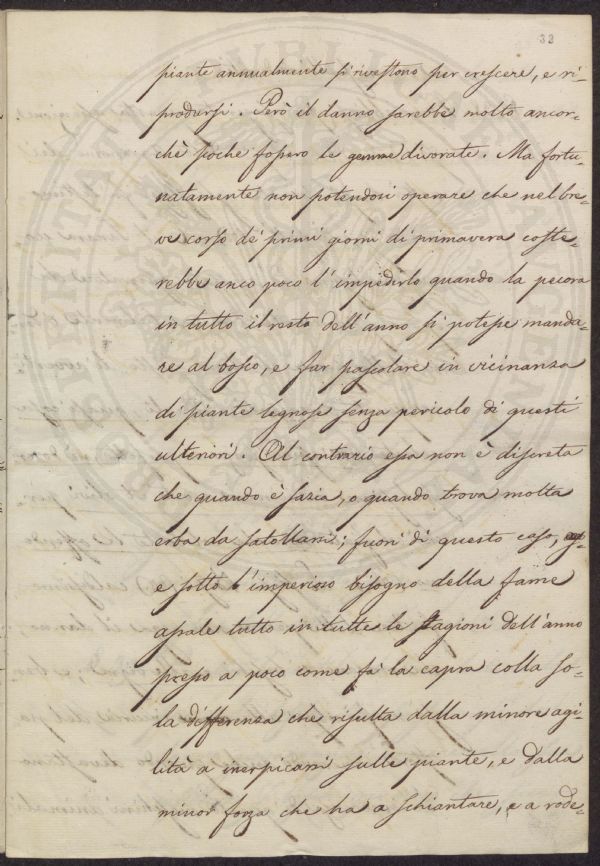 33
piante annualmente si rivestono per crescere, e ri-
prodursi. Però il danno sarebbe molto ancor-
chè poche fossero le gemme divorate. Ma fortu-
natamente non potendosi operare che nel bre-
ve corso de' primi giorni di primavera coste-
rebbe anco poco l'impedirlo quando la pecora
in tutto il resto dell'anno si potesse manda-
re al bosco, e far pascolare in vicinanza
di piante legnose senza pericolo di questi
ulteriori. Al contrario essa non è discreta
che quando è sazia, o quando trova molta
erba da satollarsi; fuori di questo caso,
e sotto l'imperioso bisogno della fame
assale tutto in tutte le stagioni dell'anno
presso a poco come fà la capra colla so-
la differenza che risulta dalla minore agi-
lità a inerpicarsi sulle piante, e dalla
minor forza che ha a schiantare, e a rode-